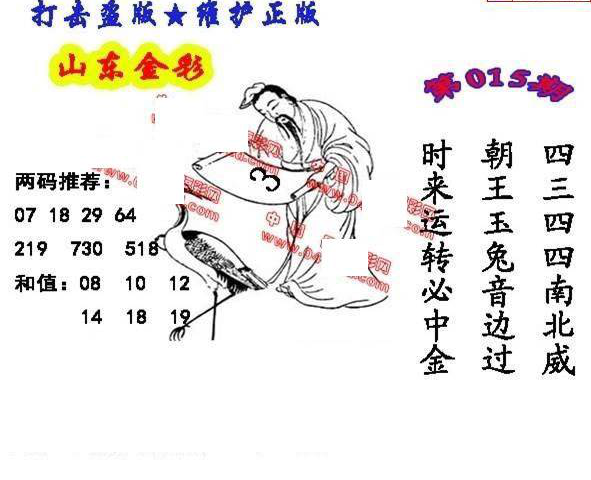 打击盗版★维护正版
山东金彩
第015期
两码推荐：
07 18 29 64
219 730 518
和值：08 10 12
14 18 19
3
四三四四南北威
朝王玉兔音边过
时来运转必中金